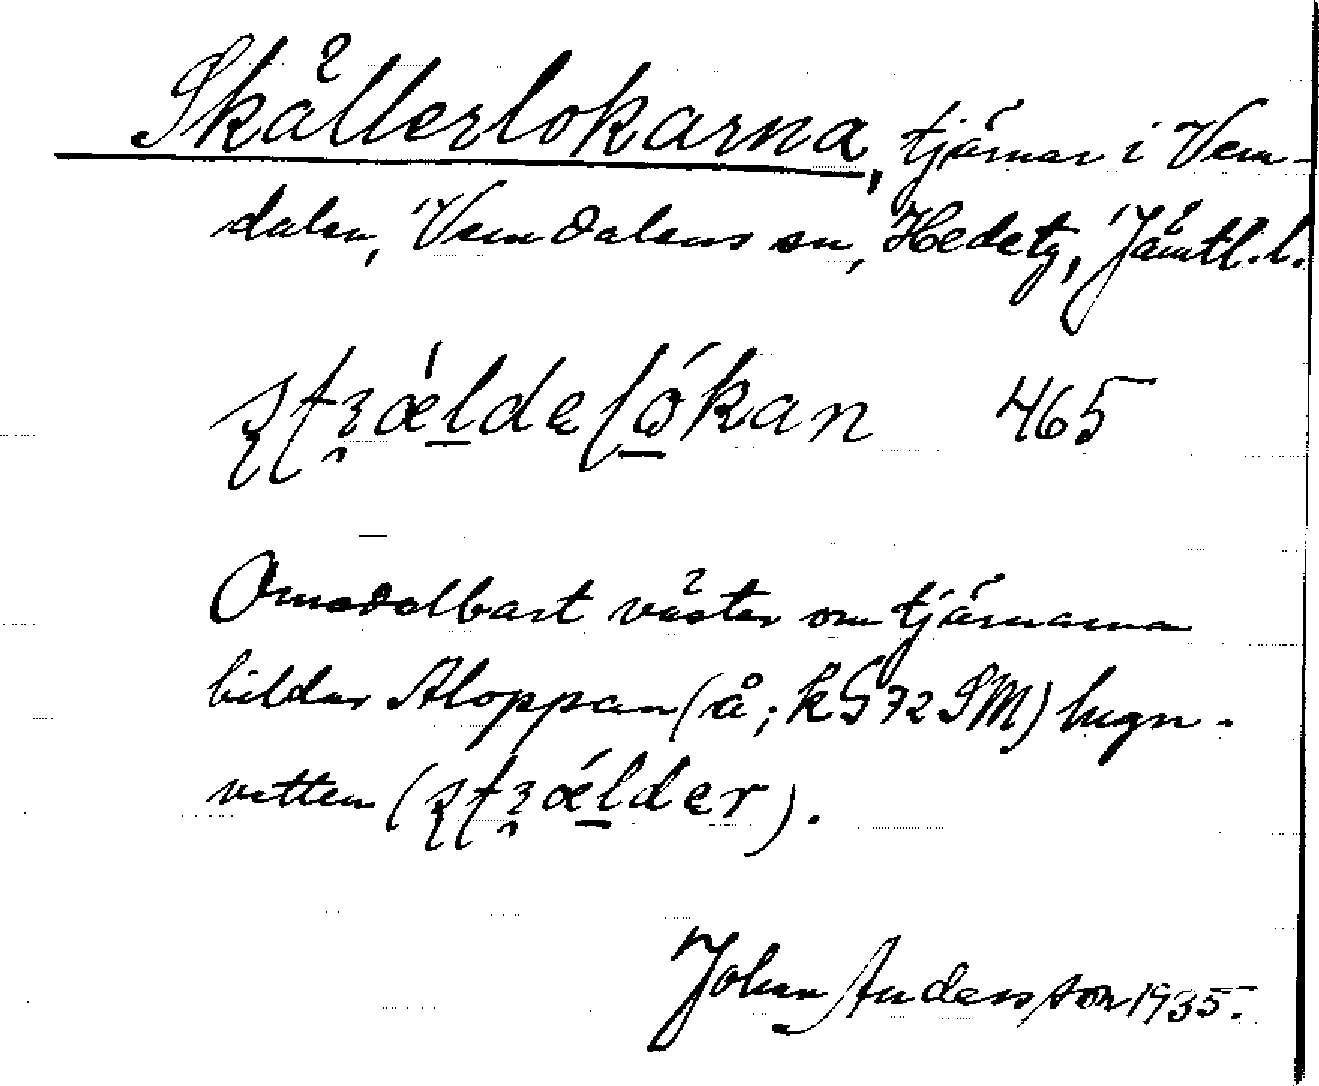 Skällerlokarna, tjärnar i Vem-
dalen, Vemdalens sn, Hedetg, Jämtl. l.
465
Omedelbart väster om tjärnarna
bildar Aloppan (å; k S 72 SM) lugn-
vatten
Johan Andersson 1935.